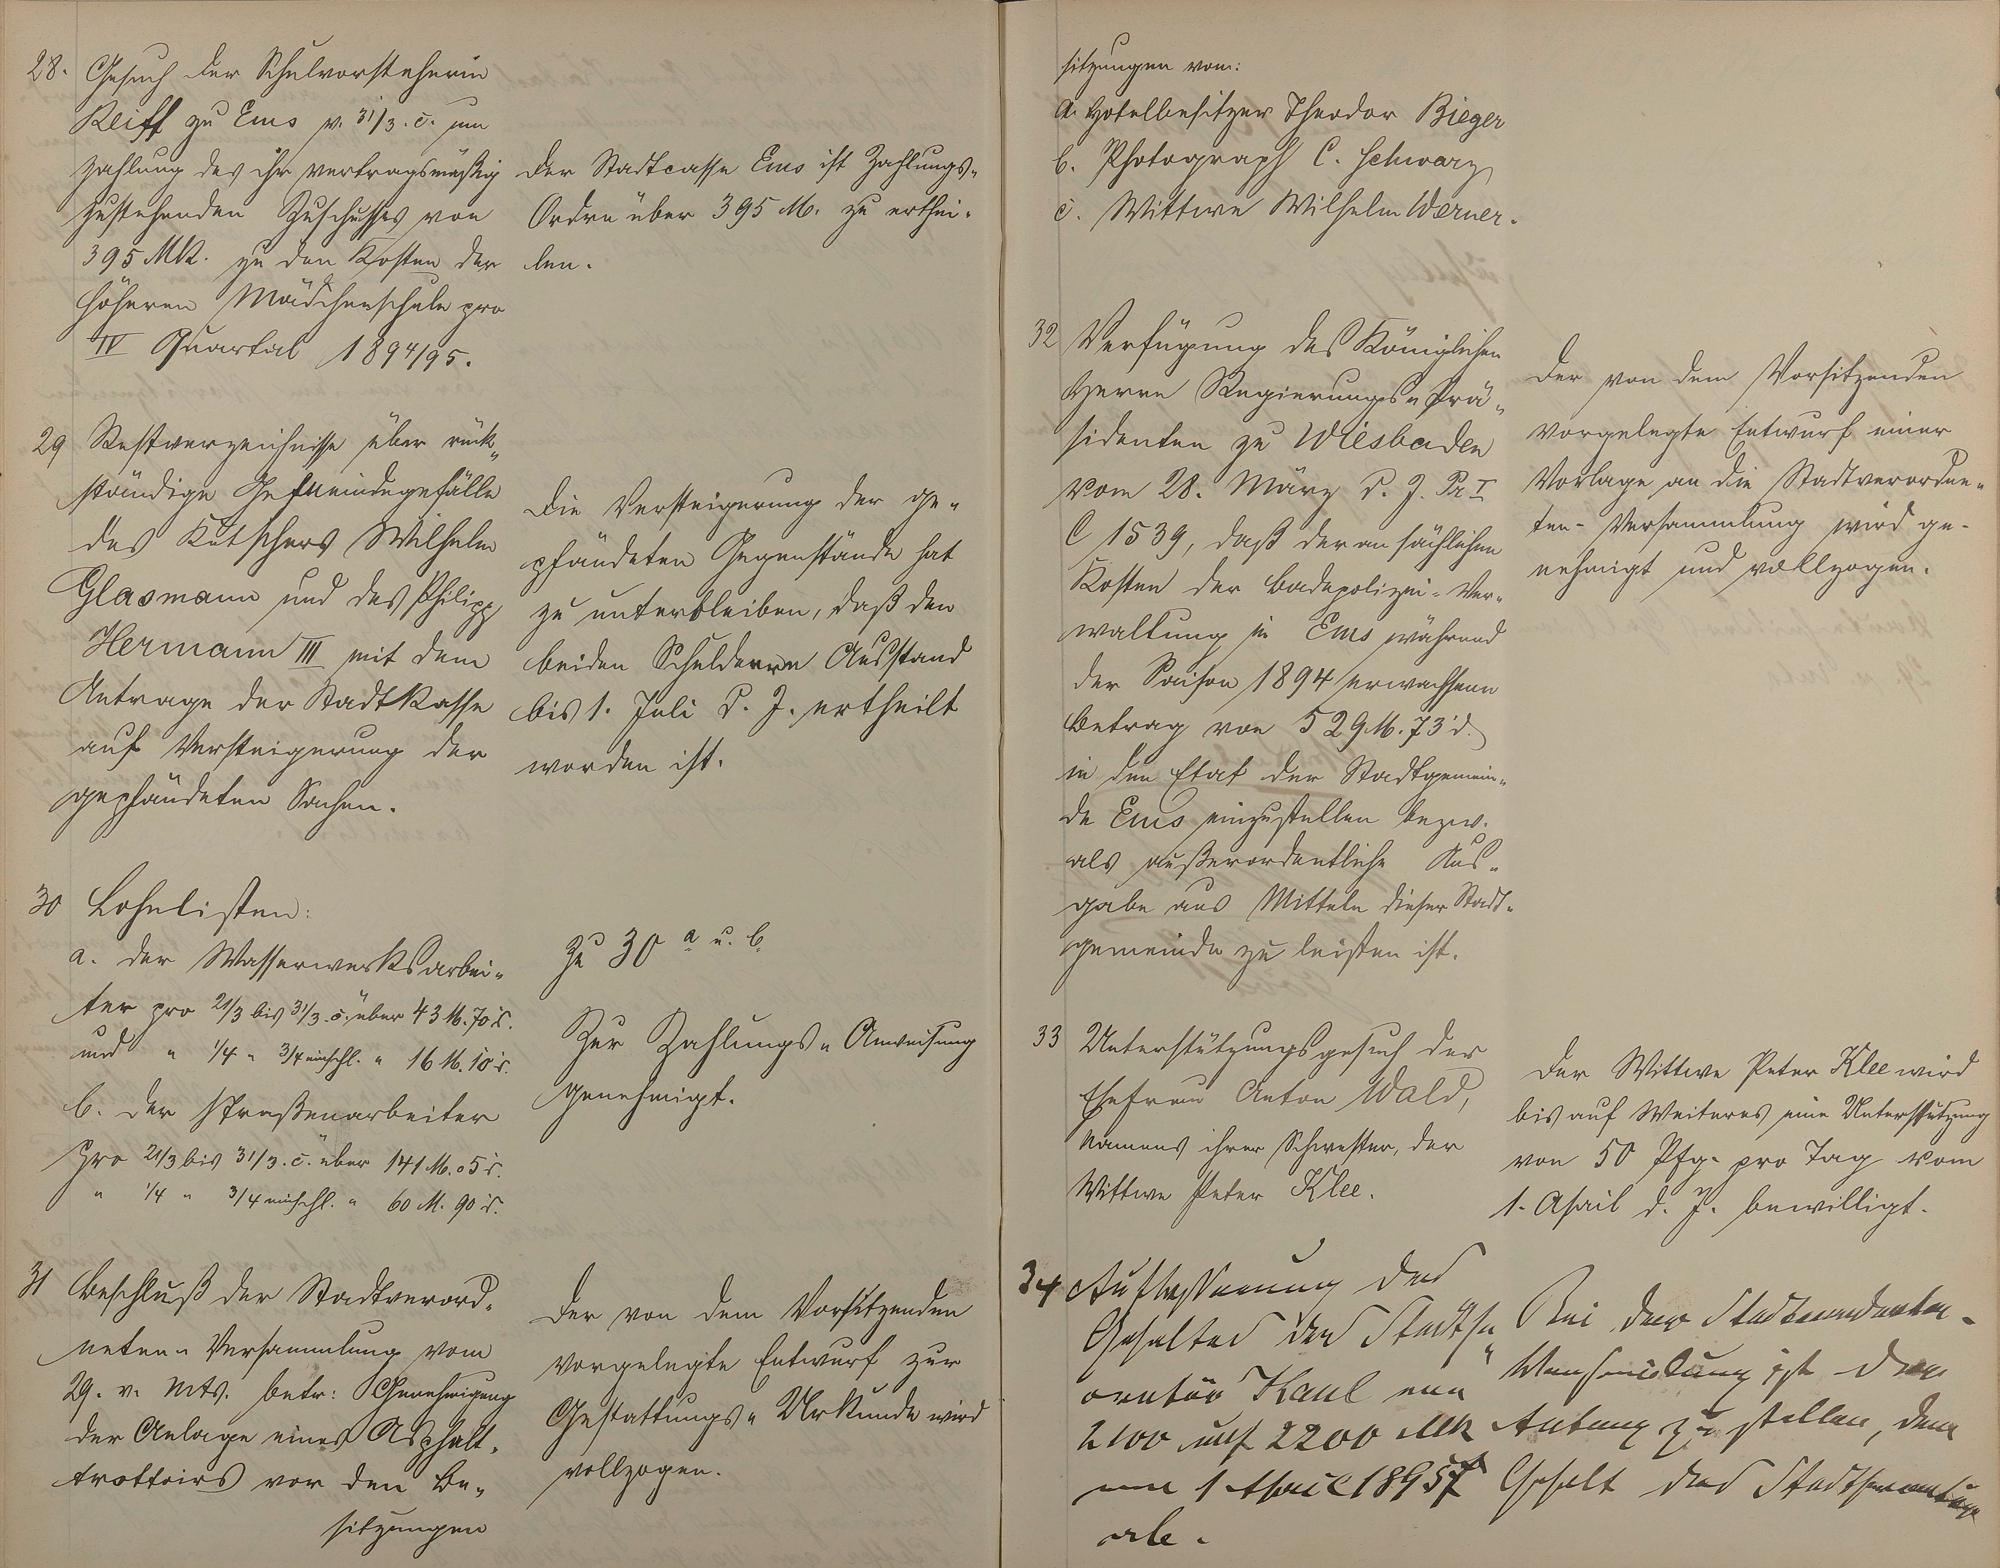 28. Gesuch der Schulvorsteherin
Reiff zu Ems v. 31/3. c. um
Zahlung des ihr vertragsmäßig
zustehenden Zuschusses von
395 Mk. zu den Kosten der
höheren Mädchenschule pro
IV Quartal 1894/95.
Der Stadtcasse Ems ist Zahlungs-
Ordre über 395 M. zu erthei-
len.
29 Restverzeichnisse über rück-
ständige Gemeindegefälle
des Kutschers Wilhelm
Glasmann und des Philipp
Hermann III mit dem
Antrage der Stadtkasse
auf Versteigerung der
gepfändeten Sachen.
Die Versteigerung der ge-
pfändeten Gegenstände hat
zu unterbleiben, daß den
beiden Schuldnern Ausstand
bis 1. Juli d. J. ertheilt
worden ist.
30 Lohnlisten:
a. der Wasserwerksarbei-
ter pro 21/3 bis 31/3. c. über 43 M. 70 d.
und " 1/4 " 3/4 einschl. " 16 M. 10 d.
b. der Straßenarbeiter
pro 21/3 bis 31/3. c. über 141 M. 05 d.
" 1/4 " 3/4 einschl. " 60 M. 90 d.
Zu 30 a u. b.
Zur Zahlungs-Anweisung
genehmigt.
31 Beschluß der Stadtverord-
neten-Versammlung vom
29. v. Mts. betr: Genehmigung
der Anlage eines Asphalt-
trottoirs vor den Be-
sitzungen
Der von dem Vorsitzenden
vorgelegte Entwurf zur
Gestattungs-Urkunde wird
vollzogen.
sitzungen von:
a. Hotelbesitzer Theodor Bieger
b. Photograph C. Schwarz
c. Wittwe Wilhelm Werner.
32 Verfügung des Königlichen
Herrn Regierungs-Prä-
sidenten zu Wiesbaden
vom 28. März d. J. Pr. I
C 1539, daß der an sächlichen
Kosten der Badepolizei-Ver-
waltung in Ems während
der Saison 1894 erwachsene
Betrag von 529 M. 73 d.
in den Etat der Stadtgemein-
de Ems einzustellen bezw.
als außerordentliche Aus-
gabe aus Mitteln dieser Stadt-
gemeinde zu leisten ist.
Der von dem Vorsitzenden
vorgelegte Entwurf einer
Vorlage an die Stadtverordne-
ten-Versammlung wird ge-
nehmigt und vollzogen.
33 Unterstützungsgesuch der
Ehefrau Anton Wald,
Namens ihrer Schwester, der
Wittwe Peter Klee.
Der Wittwe Peter Klee wird
bis auf Weiteres eine Unterstützung
von 50 Pfg. pro Tag vom
1. April d. J. bewilligt.
34 Aufbesserung des
Gehaltes des Stadtse-
cretär Kaul von
2100 auf 2200 Mk
vom 1 April 1895
ab.
Bei der Stadtverordneten-
Versammlung ist der
Antrag zu stellen, dem
Gehalt des Stadtsecretärs